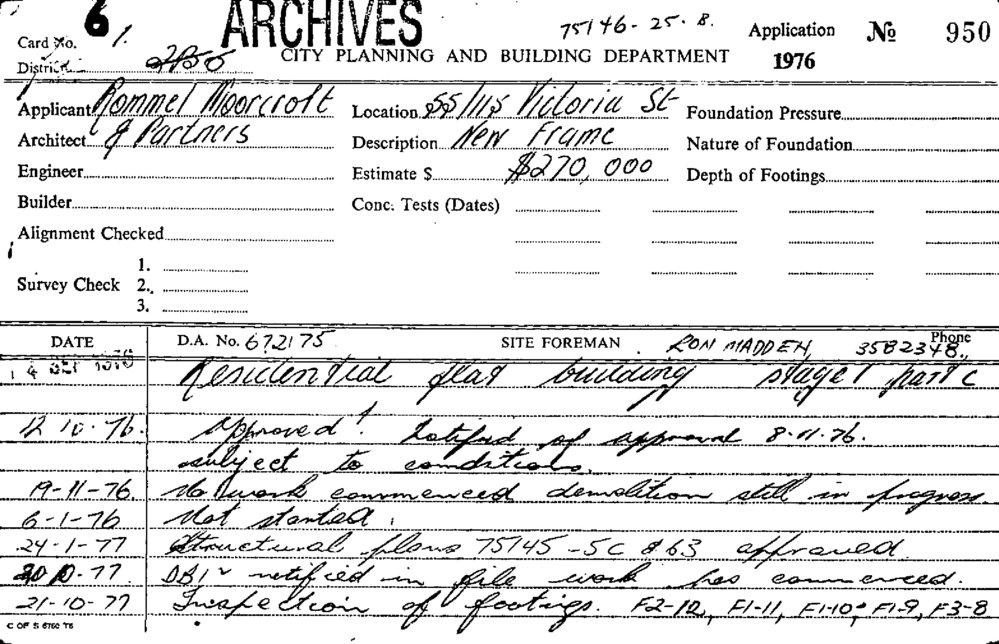 6/.
ARCHIVES
75146-25. 8.
Application № 950
Card No.
CITY PLANNING AND BUILDING DEPARTMENT
1976
District
Applicant Rommel Moorcroft
Location 55/115 Victoria St
Foundation Pressure
Architect & Partners
Description New Frame
Nature of Foundation
Engineer
Estimate $ $270,000
Depth of Footings
Builder
Conc. Tests (Dates)
Alignment Checked
Survey Check
1.
2.
3.
DATE
D.A. No. 672175
SITE FOREMAN RON MADDEN, Phone 3582348.
Residential flat building stage 1 part C
12 10. 76. Approved! Notified of approval 8-11-76.
subject to conditions.
19-11-76. No work commenced demolition still in progress
6-1-76 Not started.
24-1-77 Structural plans 75145-5C & 63 approved.
10.77. notified in file work has commenced.
21-10-77 Inspection of footings. F2-12, F1-11, F1-10, F1-9, F3-8
C OF S 6760 76